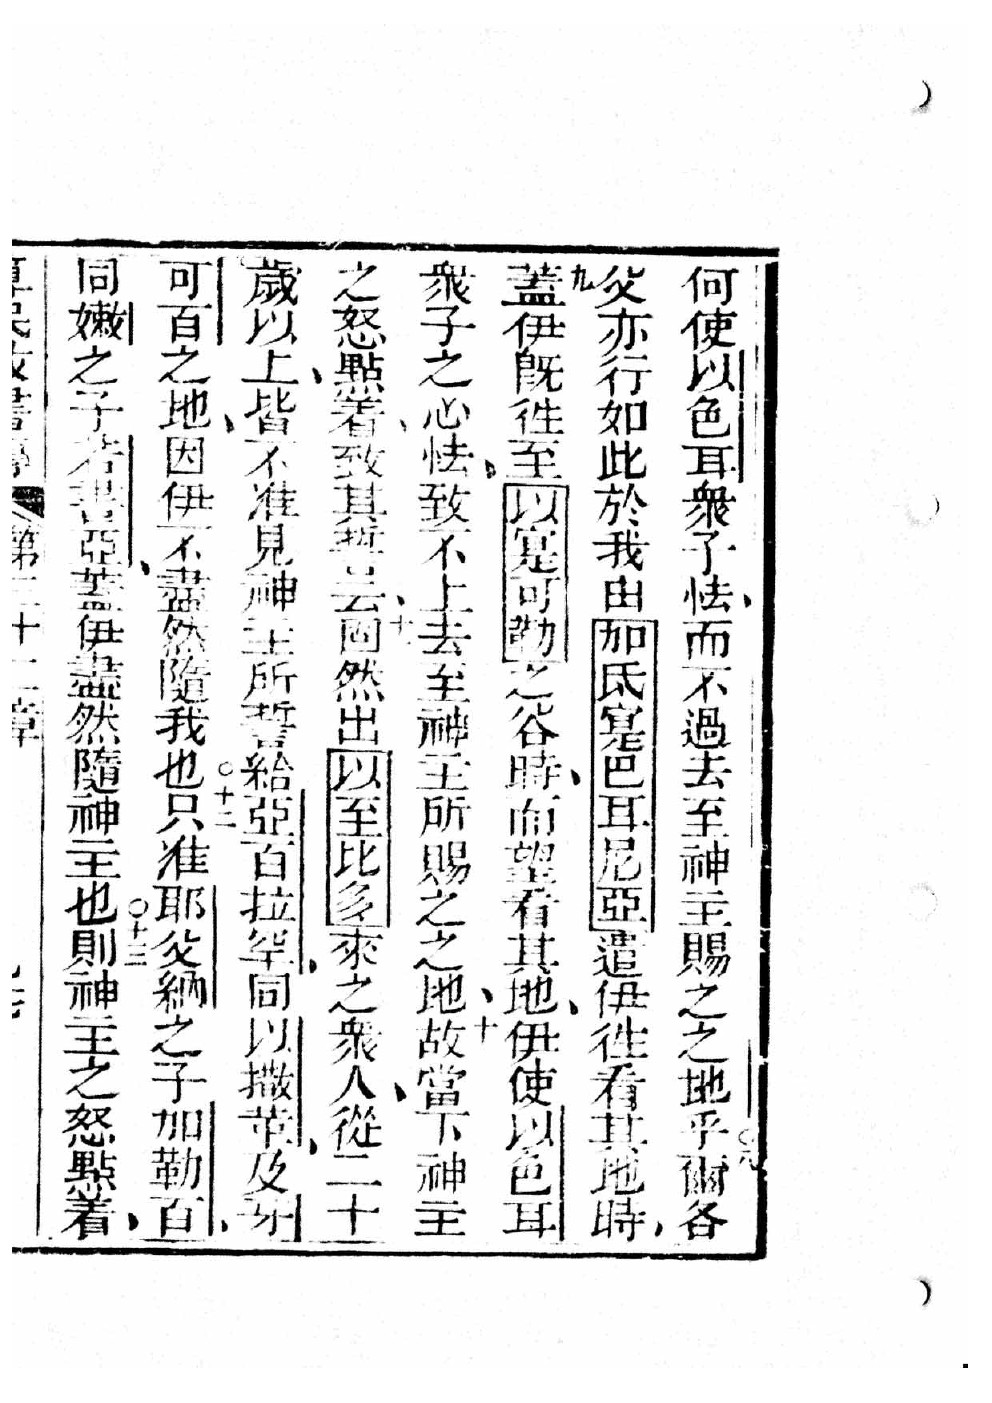 何使以色耳衆子怯而不過去至神主賜之之地乎爾各
父亦行如此於我由加氐寔巴耳尼亞遣伊徃看其地時
九蓋伊旣徃至以寔可勒之谷時而望看其地伊使以色耳
衆子之心怯致不上去至神主所賜之之地十故當下神主
之怒點着致其誓云十一固然出以至比多來之衆人從二十
歲以上皆不准見神主所誓給亞百拉罕同以撒革及牙
可百之地因伊不盡然隨我也十二只准耶父納之子加勒百
同嫩之子若書亞蓋伊盡然隨神主也十三則神主之怒點着
第三十二章